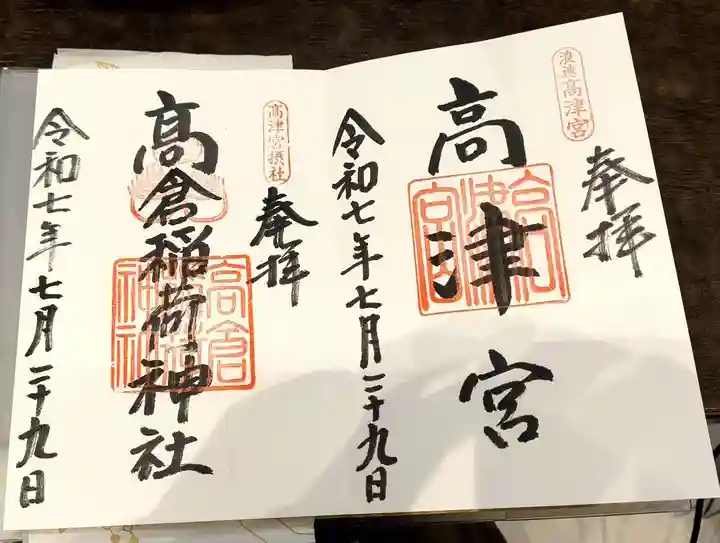 浪速高津宮
奉拝
高津宮
高津宮
令和七年七月二十九日
高津宮摂社
奉拝
髙倉稲荷神社
高倉稲荷神社
令和七年七月二十九日